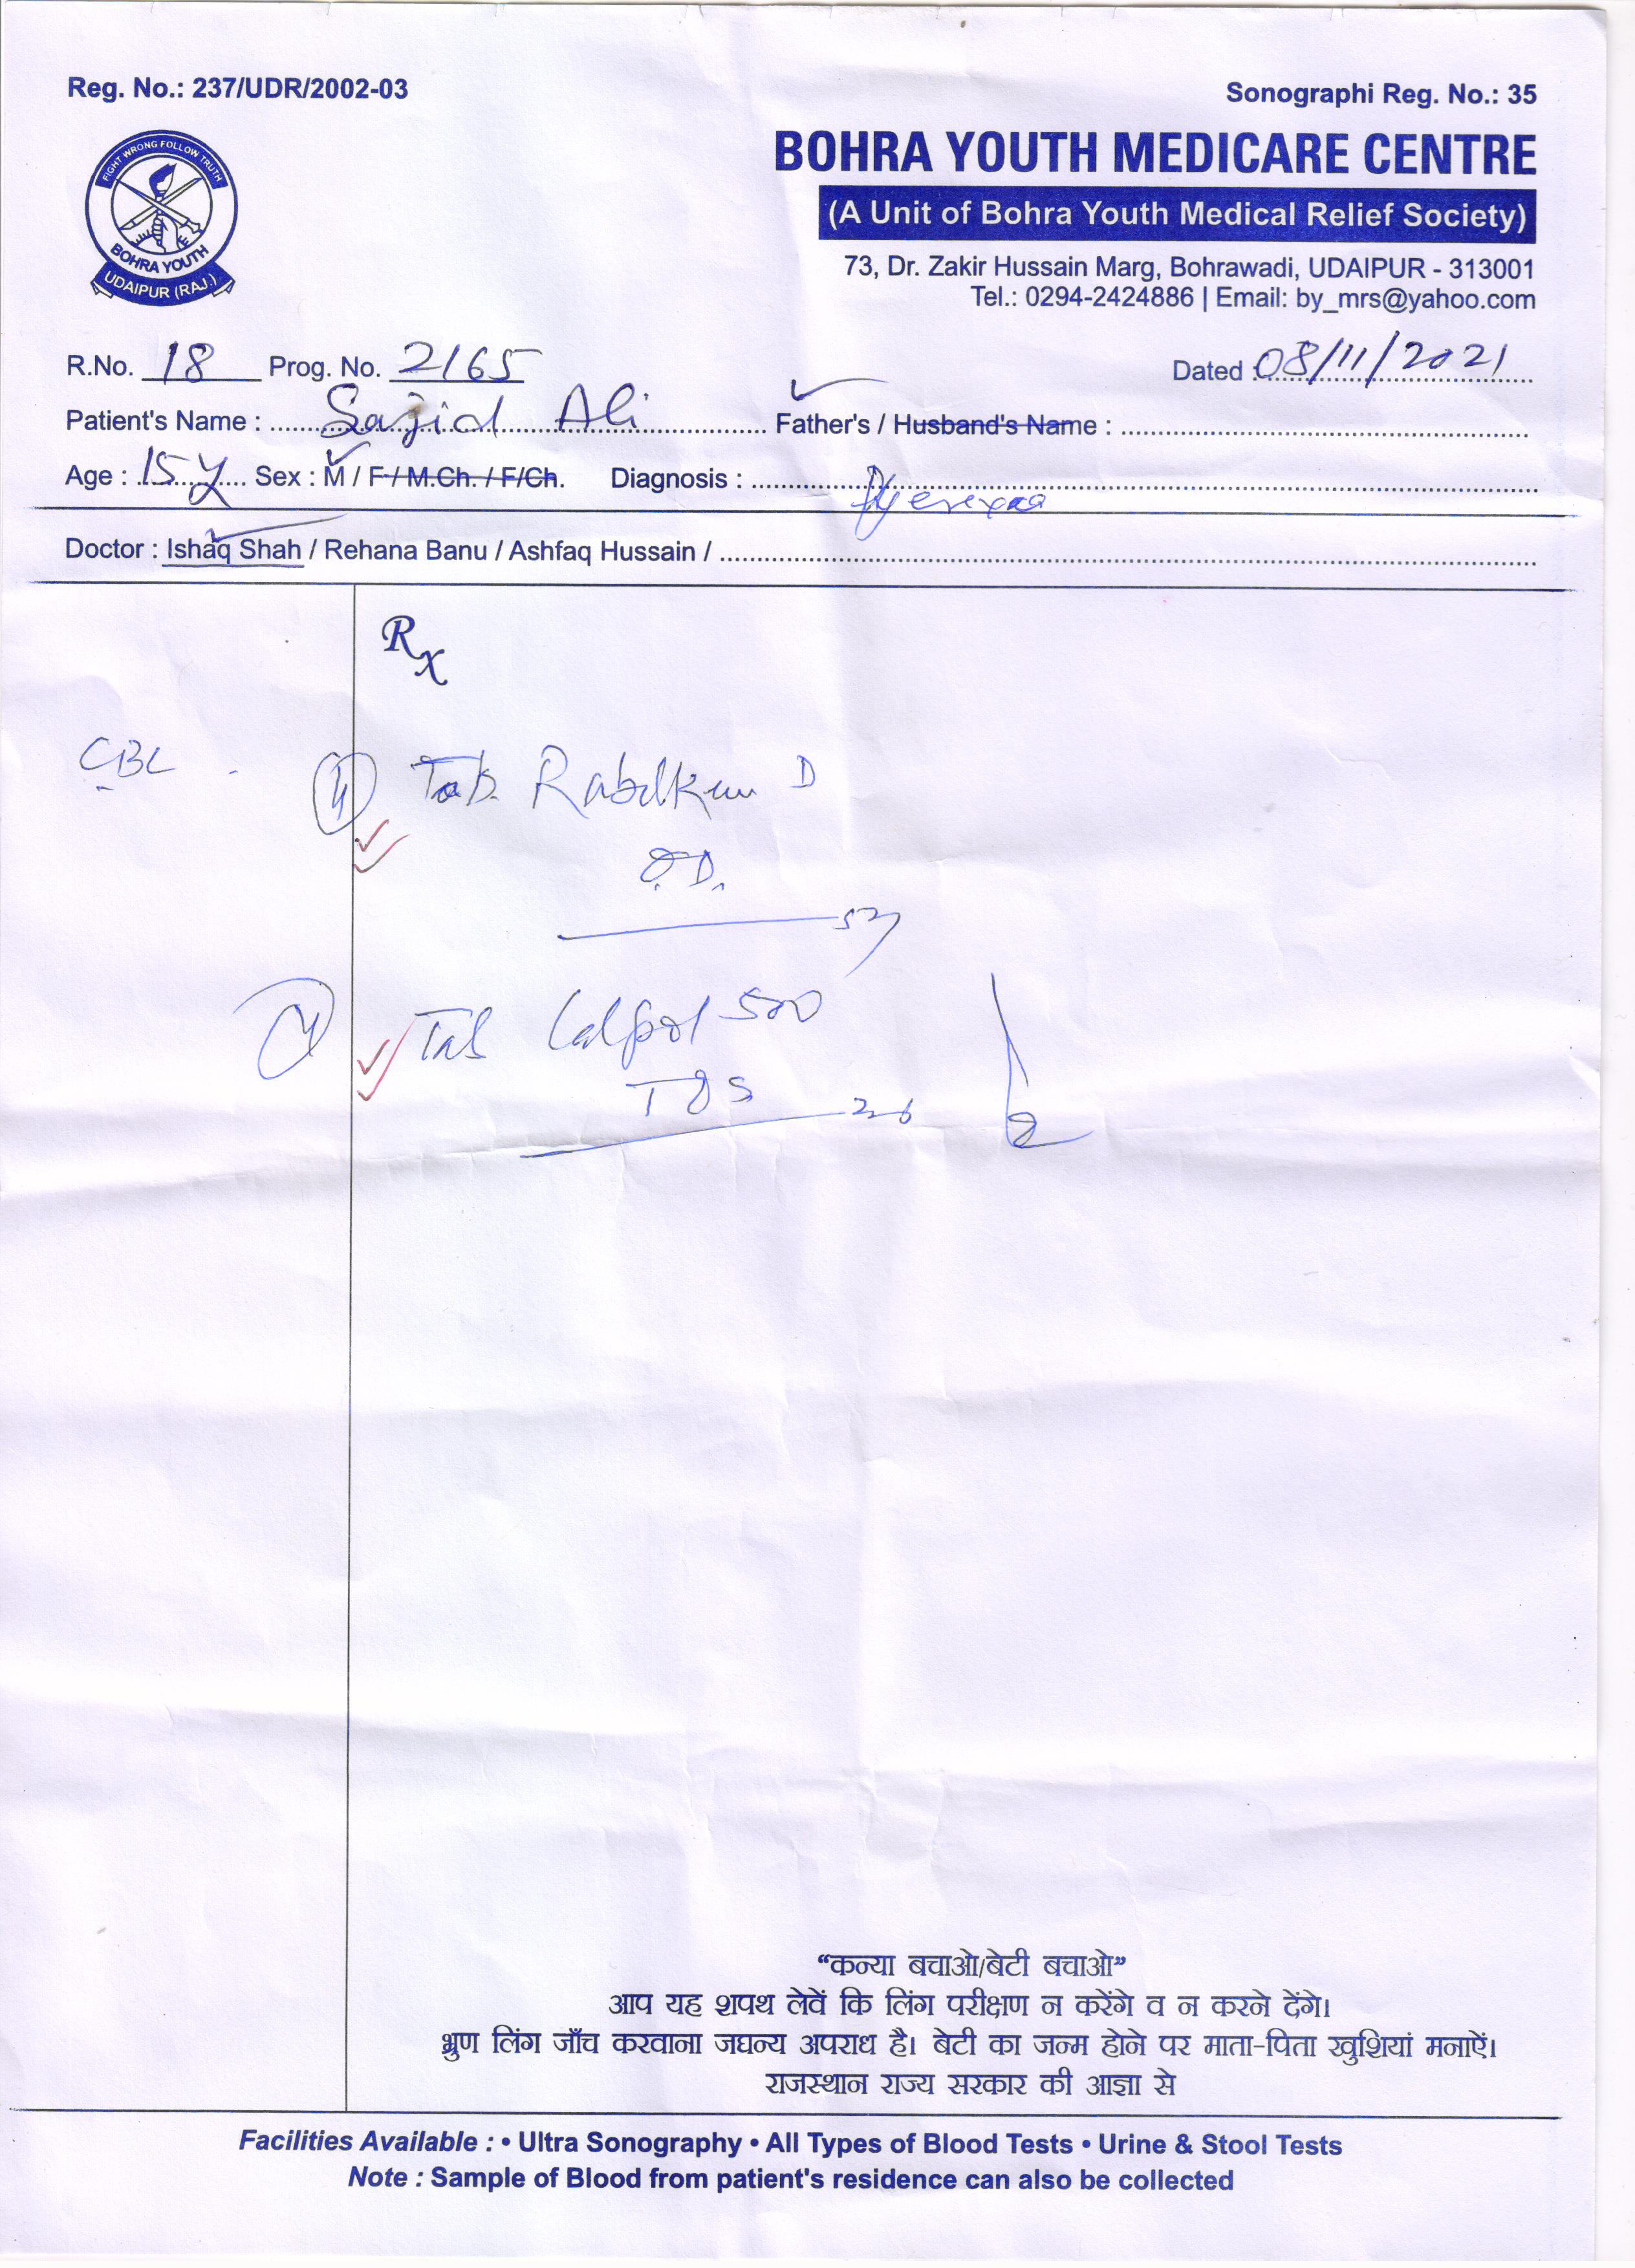 Reg. No.: 237/UDR/2002-03
Sonographi Reg. No.: 35
FIGHT WRONG FOLLOW TRUTH
BOHRA YOUTH
UDAIPUR (RAJ.)
BOHRA YOUTH MEDICARE CENTRE
(A Unit of Bohra Youth Medical Relief Society)
73, Dr. Zakir Hussain Marg, Bohrawadi, UDAIPUR - 313001
Tel.: 0294-2424886 | Email: by_mrs@yahoo.com
R.No. 18 Prog. No. 2165 Dated : 08/11/2021
Patient's Name : Sajid Ali Father's / Husband's Name :
Age : 15 y Sex : M / F / M.Ch. / F/Ch. Diagnosis :
Doctor : Ishaq Shah / Rehana Banu / Ashfaq Hussain /
Rx
Tab. D
O.D.
Tab Calpol 500
TDS
“कन्या बचाओ/बेटी बचाओ”
आप यह शपथ लेवें कि लिंग परीक्षण न करेंगे व न करने देंगे।
भ्रुण लिंग जाँच करवाना जघन्य अपराध है। बेटी का जन्म होने पर माता-पिता खुशियां मनाऐं।
राजस्थान राज्य सरकार की आज्ञा से
Facilities Available : • Ultra Sonography • All Types of Blood Tests • Urine & Stool Tests
Note : Sample of Blood from patient's residence can also be collected